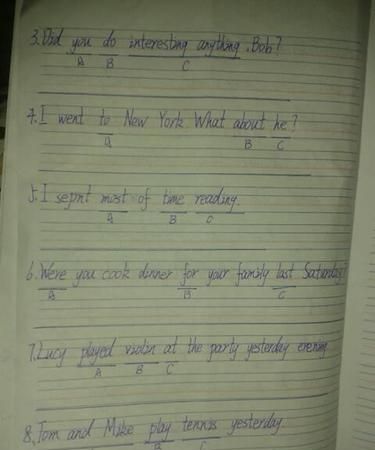 3. Did you do interesting anything, Bob?
A B C
4. I went to New York. What about he?
A B C
5. I sepnt most of time reading.
A B C
6. Were you cook dinner for your family last Saturday?
A B C
7. Lucy played violin at the party yesterday evening
A B C
8. Tom and Mike play tennis yesterday.
A B C